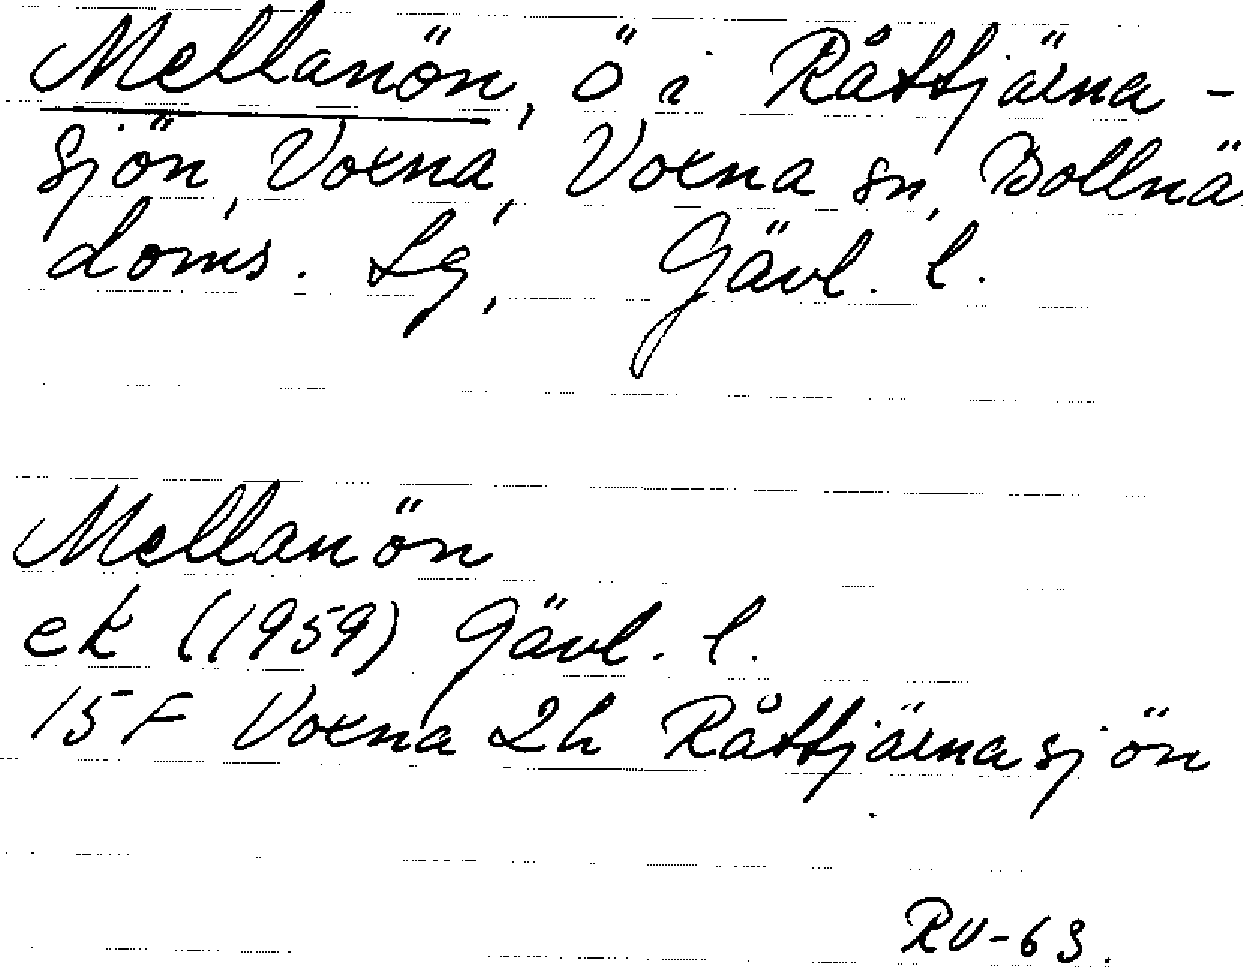 Mellanön, ö i Råttjärna-
sjön, Voxna, Voxna sn, Bollnä
doms. Lg, Gävl. l.
Mellanön
ek (1959) Gävl. l.
15F Voxna 2h Råttjärnasjön
RV-63.